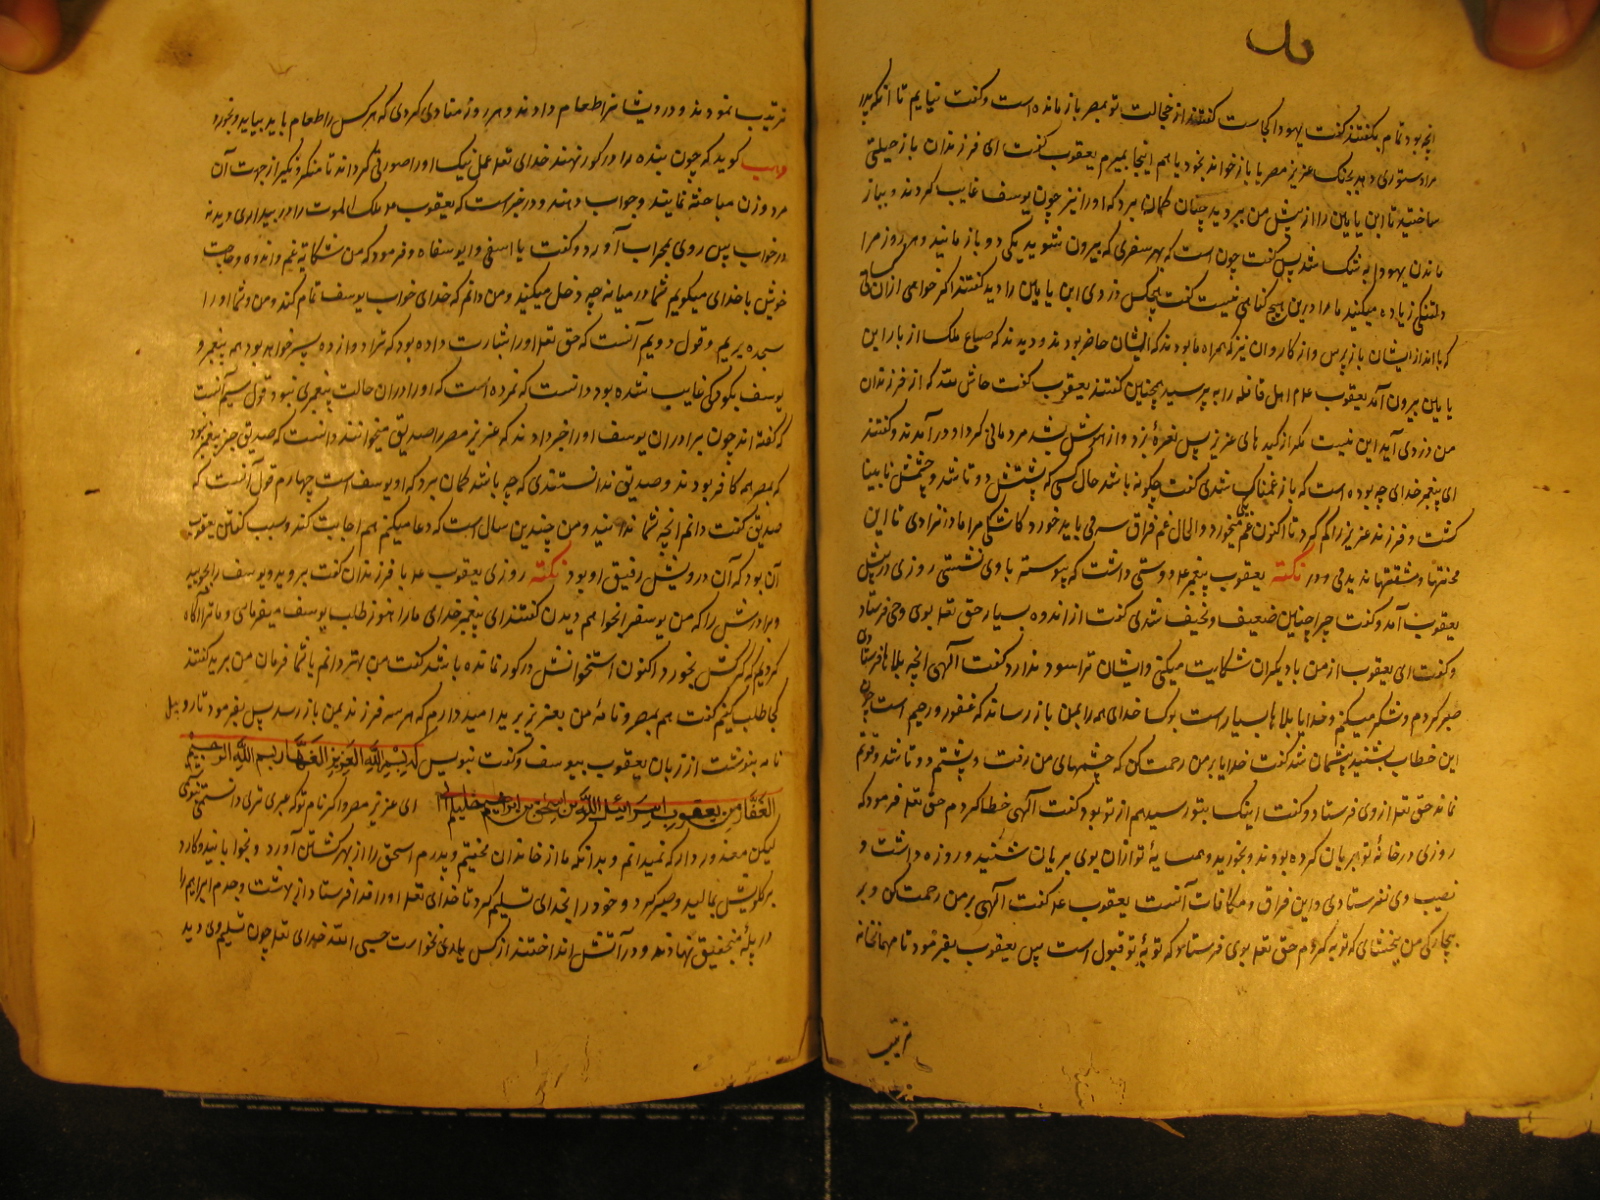 انچه بود تمام بگفتند گفت یهودا کجاست گفتند از خجالت تو بمصر باز مانده است و گفت نیایم تا آنکه پدر
مرا دستوری دهد عزیز مصر یا باز خواند بخود یا هم اینجا بمیرم یعقوب گفت ای فرزندان باز حیلتی
ساختید تا ابن یامین را از پیش من ببردید چنان گمان برد که او را نیز چون یوسف غایب کردند و باز
ماندن یهودا به شک شد پس گفت چون است که بهر سفری که بیرون شوید یکی دو باز مانید و هر روز مرا
دلتنگی زیاده میکنید ما را درین هیچ گناهی نیست گفت هیچکس دزدی ابن یامین را دید گفتند اگر خواهی از آن
که با ایشان باز پرس و از کاروان نیز که همراه ما بودند که ایشان حاضر بودند و دیدند که صاع ملک از بار ابن
یامین بیرون آمد یعقوب علم اهل قافله را به پرسید همچنین گفتند یعقوب گفت حاش لله که از فرزندان
من دزدی آید این نیست مگر از کیدهای عزیز پس نعره بزد و از هوش بشد مردمانی گرد او در آمدند و گفتند
ای پیغمبر خدای چه بوده است که باز غمناک شدی گفت چگونه باشد حال کسی که پشتش دوتا شد و چشمش نابینا
گشت و فرزند عزیز را گم کرد تا اکنون غم میخورد و الحال غم فراق سه می باید خورد کاشکی مرا مادر نزادی تا این
محنتها و مشقتها ندیدمی نکته یعقوب پیغمبر علم دوستی داشت که پیوسته با وی نشستی روزی در پیش
یعقوب آمد و گفت چرا چنین ضعیف و نحیف شدی گفت از اندوه بسیار حق تعالی بوی وحی فرستاد
و گفت ای یعقوب از من با دیگران شکایت میکنی و ایشان ترا سود ندارد گفت الهی انچه بلاها فرستادی
صبر کردم و شکر میکنم و خدایا بلاها بسیار است خدای همه را بمن باز رساند که غفور و رحیم است چون
این خطاب بشنید پشیمان شد گفت خدایا بر من رحمت کن که چشمهای من رفت و پشتم دوتا شد و قوتم
نماند حق تعالی از وی فرستاد و گفت اینک بتو رسید هم از تو بود گفت الهی خطا کردم حق تعالی فرمود که
روزی در خانه تو بریان کرده بودند و بخورید و همسایه تو از آن بوی بریان شنید و روزه داشت و
نصیب وی نفرستادی و این فراق و مکافات آنست یعقوب علم گفت الهی بر من رحمت کن و بر
بیچارگی من ببخشای که توبه کردم حق تعالی بوی فرستاد که توبه تو قبول است پس یعقوب بفرمود تا مهمانخانه
ترتیب
ترتیب نمودند و درویشانرا طعام دادند و هر روزه منادی کردی که هر کس را طعام باید بیاید و بخورد
وهب گوید که چون بنده را در گور نهند خدای تعالی عمل نیک او را صورتی گرداند تا منکر و نکیر از جهت آن
مرد و زن مباحثه نمایند و جواب دهند و در خبر است که یعقوب علم ملک الموت را در بیداری دید نه
در خواب پس روی بمحراب آورد و گفت یا اسفی وا یوسفاه و فرمود که من شکایت غم و اندوه و حاجت
خویش با خدای میگویم شما در میانه چه دخل میکنید و من دانم که خدای خواب یوسف تمام کند و من و شما او را
سجده بریم و قول دویم آنست که حق تعالی او را بشارت داده بود که ترا دوازده پسر خواهد بود همه پیغمبر و
یوسف بکودکی غایب شده بود دانست که نمرده است که او را در آن حالت پیغمبری نبود قول سیم آنست
که گفته اند چون برادران یوسف او را خبر دادند که عزیز مصر را صدیق میخوانند دانست که صدیق جز پیغمبر نبود
که بمصر همه کافر بودند و صدیق ندانستندی که چه باشد گمان برد که او یوسف است چهارم قول آنست که
صدیق گفت دانم انچه شما ندانید و من چندین سال است که دعا میکنم هم اجابت کند و سبب گفتن یعقوب
آن بود که آن درویش رفیق او بود نکته روزی یعقوب علم با فرزندان گفت بروید و یوسف را بجویید
و برادرش را که من یوسف را بخواهم دیدن گفتند ای پیغمبر خدای ما را هنوز طلب یوسف میفرمائی و ما ترا آگاه
کردیم که گرگش بخورد اکنون استخوانش در گور نمانده باشد گفت من بهتر دانم یا شما فرمان من برید گفتند
کجا طلب کنیم گفت هم بمصر و نامه من بعزیز برید امید دارم که هر سه فرزند بمن باز رسد پس بفرمود تا روبیل
نامه بنوشت از زبان یعقوب بیوسف و گفت بنویس که بسم الله العزیز القهار بسم الله الرحیم
الغفار من یعقوب اسرائیل الله بن اسحق بن ابراهیم خلیل الله ای عزیز مصر و اگر نام تو که عبری تری دانستمی بنوشتمی
لیکن معذور دار که نمیدانم و بدانکه ما از خاندان نبوتیم و پدرم اسحق را از بهر کشتن آورد و بخوابانید و کارد
بر گلویش بمالید و صبر کرد و خود را بخدای تسلیم کرد تا خدای تعالی او را فدا فرستاد از بهشت و جدم ابراهیم را
در پله منجنیق نهادند و در آتش انداختند از کس یاری نخواست حسبی الله خدای تعالی چون تسلیم وی دید